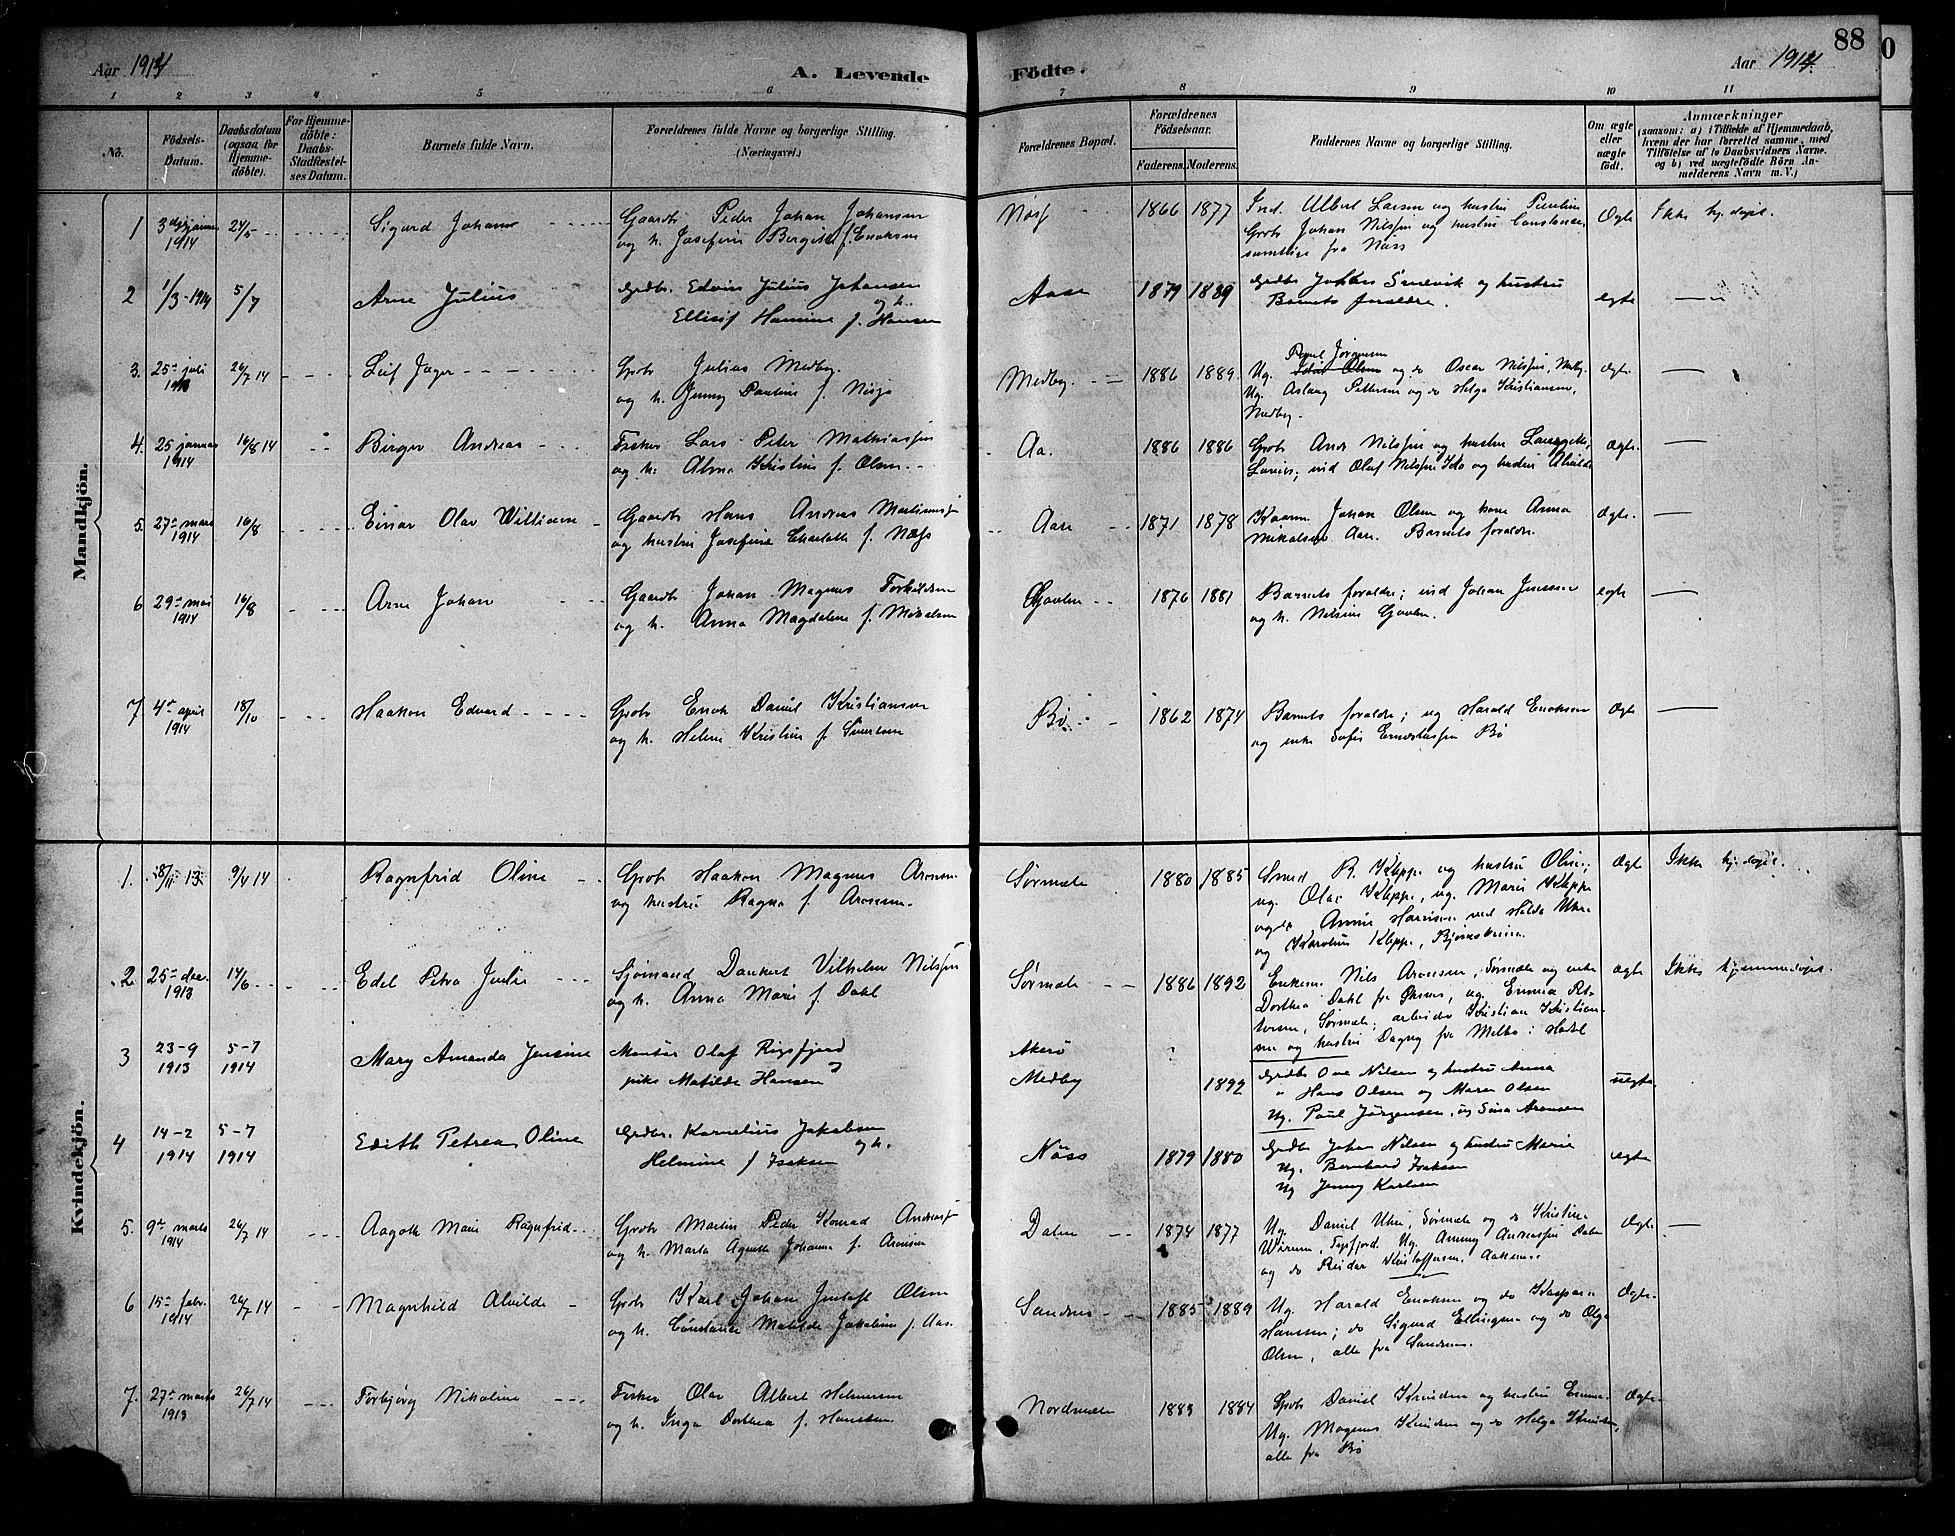 88
0
Aar 1914
A. Levende
Födte.
Aar 1914.
1 2 3 4 5 6 7 8 9 10 11
No.
Födsels-
Datum.
Daabsdatum
(ogsaa for
Hjemme-
döbte).
For Hjemme-
döbte:
Daabs-
Stadfæstel-
ses Datum.
Barnets fulde Navn.
Forældrenes fulde Navne og borgerlige Stilling.
(Næringsvei.)
Forældrenes Bopæl.
Forældrenes
Födselsaar.
Faderens. Moderens.
Faddernes Navne og borgerlige Stilling.
Om ægte
eller
uægte
födt.
Anmærkninger
(saasom: a) i Tilfælde af Hjemmedaab,
hvem der har forrettet samme, med
Tilföielse af to Daabsvidners Navne.
og b) ved uægtefödte Börn An-
melderens Navn m.V.)
Mandkjön.
1 3 1914 24/5 Sigurd Johan Gaardb Peder Johan Johansen
og h. Josefine Bergitte f. Enoksen
Næss 1866 1877 Ind. Albert Larsen og hustru Pauline
Grbr Johan Nilssen og hustru Constance,
samtlige fra Næss
Ægte Ikke hj.døpt.
2 1/3-1914 5/7 Arne Julius Grdbr. Edvin Julius Johansen
og h.
Ellisif Hansine f. Hansen
Aase 1879 1889 Grdbr Johan og hustru
Barnets forældre.
egte
3. 25 juli 26/7 14 Leif Jæger Grbr Julius Medby
og h. Jenny Pauline f. Næss
Medby. 1886 1889. Paul Jørgensen
Ug. Olsen og do Oscar Nilssen, Medby.
Ug. Aslaug Pettersen og do Helga Kristiansen,
Medby.
Ægte
4. 25 januar
1914 16/8 14 Birger Andreas Fisker Lars Peter Mathiassen
og h. Alma Kristine f. Olsen
Aa. 1886 1886 Grbr Andr Nilssen og hustru
ind Olaf Nilssen og hustru Alvilde
Ægte
5. 27 mars
1914 16/8 Einar Olav William Gaardb Hans Andreas
og hustru Josefine Charlotte f. Næss
Aase 1871 1878 Kaarm. Johan Olsen og kone Anna
Mikalsen Aase. Barnets foraldre.
Ægte.
6 29 mai
1914 16/8 Arne Johan Gaardb Johan Magnus Torkildsen
og h. Anna Magdalene f. Mikalsen
Gavlen 1876 1881 Barnets foraldre; ind Johan Jenssen
og h. Nilsine Gavlen.
egte
7. 4 april
1914 18/10 Haakon Edvard Grbr Enok Daniel Kristiansen
og h. Helene Kristine f. Sivertsen
Bø 1862 1874 Barnets foraldre; ug Harald Enoksen
og enke Sofie Bø
Ægte
Kvindekjön.
1. 18/11 13 9/4 14 Ragnfrid Oline Grbr Haakon Magnus Aronsen
og hustru Ragna f. Aronsen.
Sørmæle 1880 1885 Smed R. Kleppe og hustru Oline;
ug. Olav Kleppe, ug. Marie Kleppe
og do Annie Hansen ved Hilda
og Karoline Kleppe,
Ægte Ikke hj.døpt.
2. 25 dec.
1913 14/6 Edel Petra Julie Sjømand Dankert Vilhelm Nilssen
og h. Anna Marie f. Dahl
Sørmæle 1886 1892 Enkem. Nils Aronsen, Sørmæle og enke
Dorthea Dahl fra Øksnes, ug. Emma Pet-
tersen, Sørmæle; arbeider Kristian Kristian-
sen og hustru Dagny fra Melbo i Hadsel
Ægte Ikke hjemmedøpt.
3 23-9
1913 5-7
1914 Mary Amanda Jensine Montør Olaf
og
pike Matilde Hansen
Akerø
Medby 1892 Grdbr Ove Nilsen og hustru Anna
" Hans Olsen og Maren Olsen
Ug. Paul Jørgensen, ug Sina Aronsen
uegte
4 14-2
1914 5-7
1914 Edith Petrea Oline Grdbr. Kornelius Jakobsen
og h.
Helmine f Isaksen
Nöss 1879 1880 Grdbr Johan Nilsen og hustru Marie
Ug. Bernhard Isaksen
Ug Jenny Karlsen
egte
5. 9 mars
1914 26/7 14 Aagoth Marie Ragnfrid Grbr Martin Peder Konrad Andreassen
og h. Marta Agnethe Johanna f. Aronsen
Dalen 1874 1877 Ug. Daniel Sørmæle og do Kristine
Ug. Anny Andreassen Dalen
og do Reidar Kristoffersen,
Ægte
6 15 febr.
1914 26/7 14 Magnhild Alvilde Grbr Karl Johan Gustaf Olsen
og h. Constance Matilde Jakobine f. Aas.
Sandnes 1885 1889 Ug. Harald Enoksen og do Kaspara
Hanssen; do Sigurd Ellingsen og do Olga
Olsen, alle fra Sandnes.
Ægte
7. 27 mars
1913 26/7 14 Torbjørg Nikoline Fisker Olav Albert Helmersen
og h. Inga Dorthea f. Hanssen.
Nordmæle 1883 1884 Grbr Daniel Knudsen og hustru Emma
Ug. Magnus Knudsen og do Helga Knudsen,
alle fra Bø
Ægte